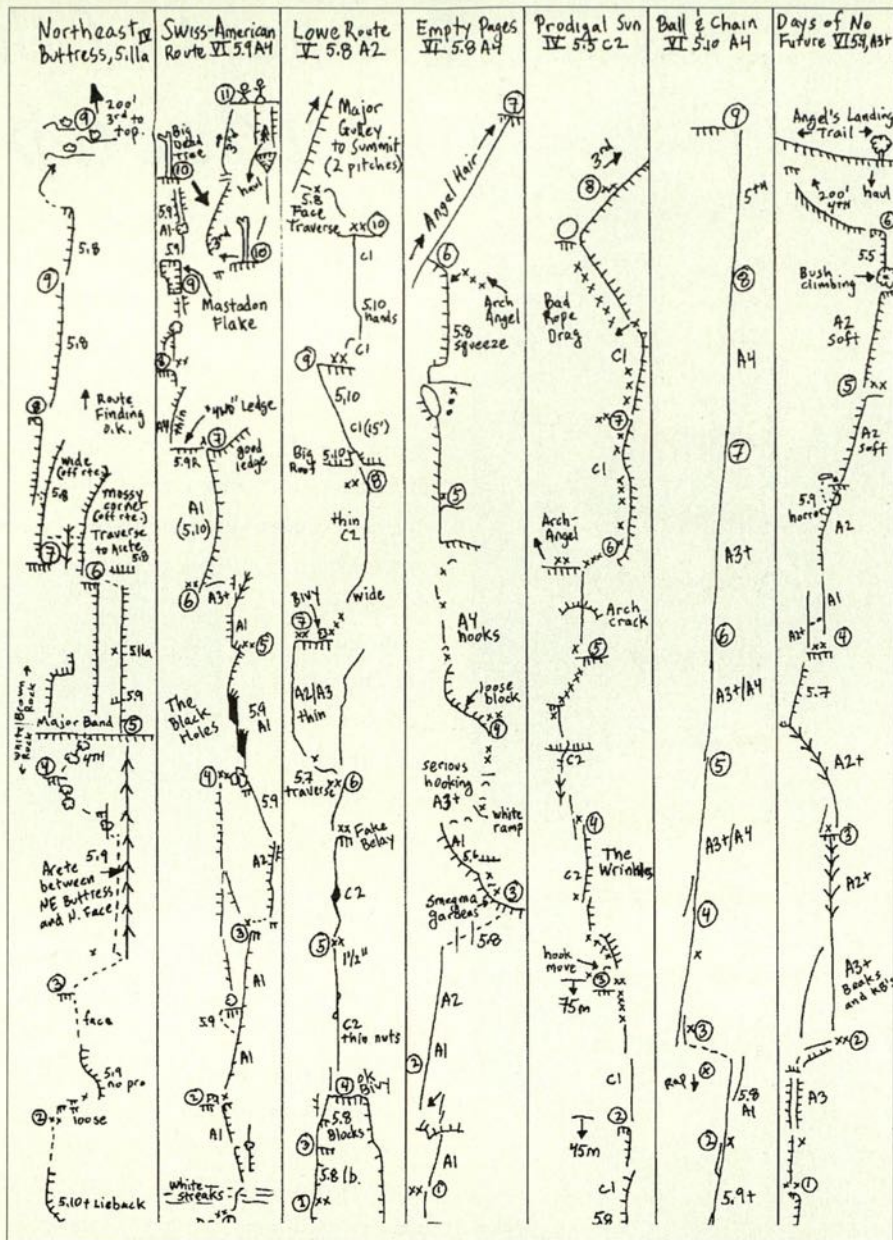 Northeast IV
Buttress, 5.11a
200'
3rd to
top.
9
5.8
9
5.8
8
Route
Finding
O.K.
wide
(off rte.)
5.8
Mossy
corner
(off rte.)
Traverse
to Arete
5.8
7
6
5.11a
5.9
White/Brown
Rock Rock
Major Band
5
4
4TH
5.9
Arete
between
NE Buttress
and N. Face
3
face
5.9
no pro
2
loose
5.10+ Lieback
Swiss-American
Route VI 5.9 A4
11
Big
Dead
Tree
3rd
haul
10
5.9
A1
5.9
3rd
10
9
Mastadon
Flake
8
A4
thin
Ledge
7
5.9R
good
ledge
A1
(5.10)
6
A3+
A1
5
The
Black
Holes
5.9
A1
4
5.9
A2
3
A1
5.9
2
A1
white
streaks
Lowe Route
V 5.8 A2
Major
Gulley
to Summit
(2 pitches)
5.8
Face
Traverse
10
C1
5.10
hands
C1
9
5.10
C1 (15')
Big
Roof
5.10
8
thin
C2
wide
Bivy
7
A2/A3
thin
5.7
traverse
6
Fake
Belay
C2
5
1 1/2"
C2
thin nuts
4
ok
Bivy
5.8
Blocks
3
5.8 lb.
2
Empty Pages
VI 5.8 A4
7
Angel Hair
6
Arch
Angel
5.8
squeeze
5
A4
hooks
loose
block
4
serious
hooking
A3+
white
ramp
A1
5.6
3
Smegma
gardens
5.8
A2
2
A1
A1
1
Prodigal Sun
IV 5.5 C2
3rd
8
Bad
Rope
Drag
C1
7
C1
Arch-
Angel
6
Arch
crack
5
C2
4
C2
The
Wrinkles
hook
move
3
75m
C1
2
45m
C1
5.8
Ball & Chain
VI 5.10 A4
9
5TH
8
A4
7
A3+
6
A3+/A4
5
A3+/A4
4
3
Rap
5.8
A1
2
5.9+
Days of No
Future VI 5.9, A3+
Angel's Landing
Trail
200'
4TH
haul
6
5.5
Bush
climbing
A2
soft
5
A2
soft
5.9
horror
A2
A1
A2+
4
5.7
A2+
3
A2+
A3+
Beaks
and KB's
2
A3
1